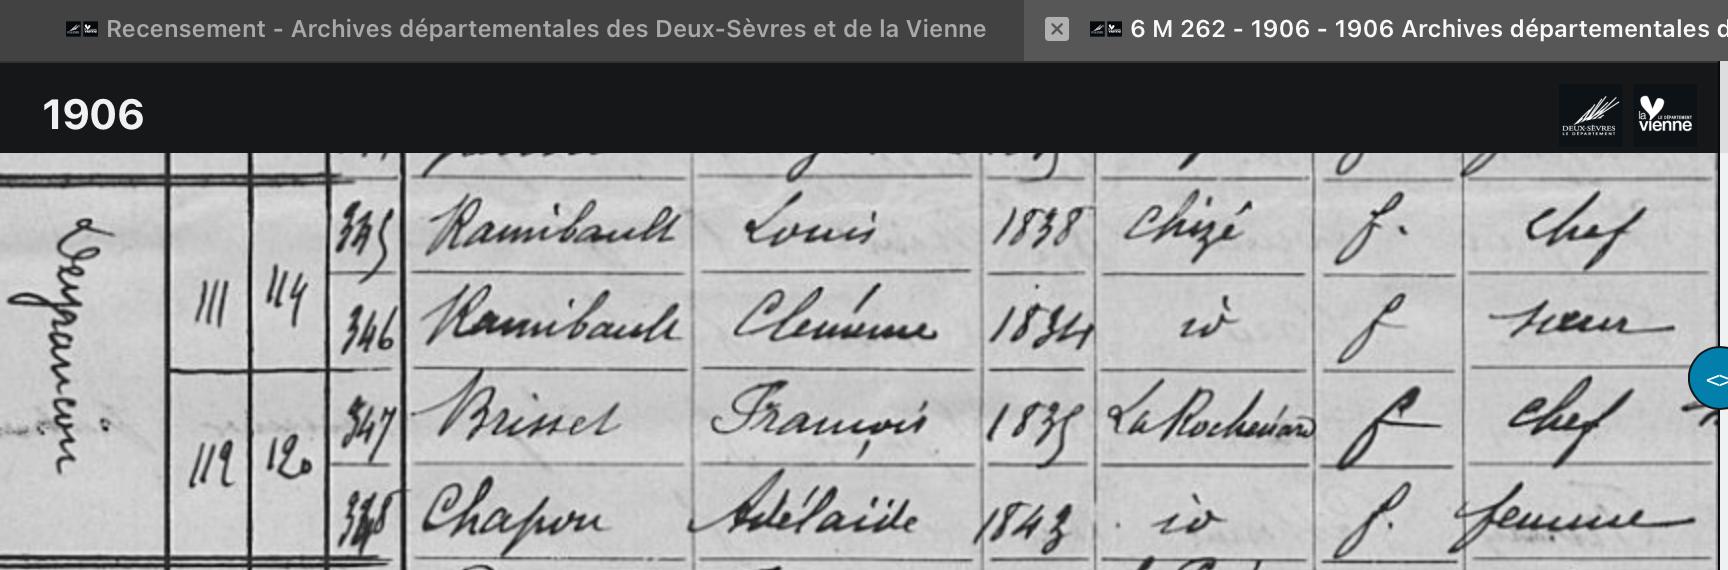 Recensement - Archives départementales des Deux-Sèvres et de la Vienne
6 M 262 - 1906 - 1906 Archives départementales d
1906
DEUX-SÈVRES
LE DÉPARTEMENT
la vienne
LE DÉPARTEMENT
111 114 345 Raimbault Louis 1838 Chizé f. chef
346 Raimbault Clémence 1834 id f sœur
112 120 347 Brisset François 1835 La Rochénard f chef
348 Chapon Adélaïde 1843 id f. femme